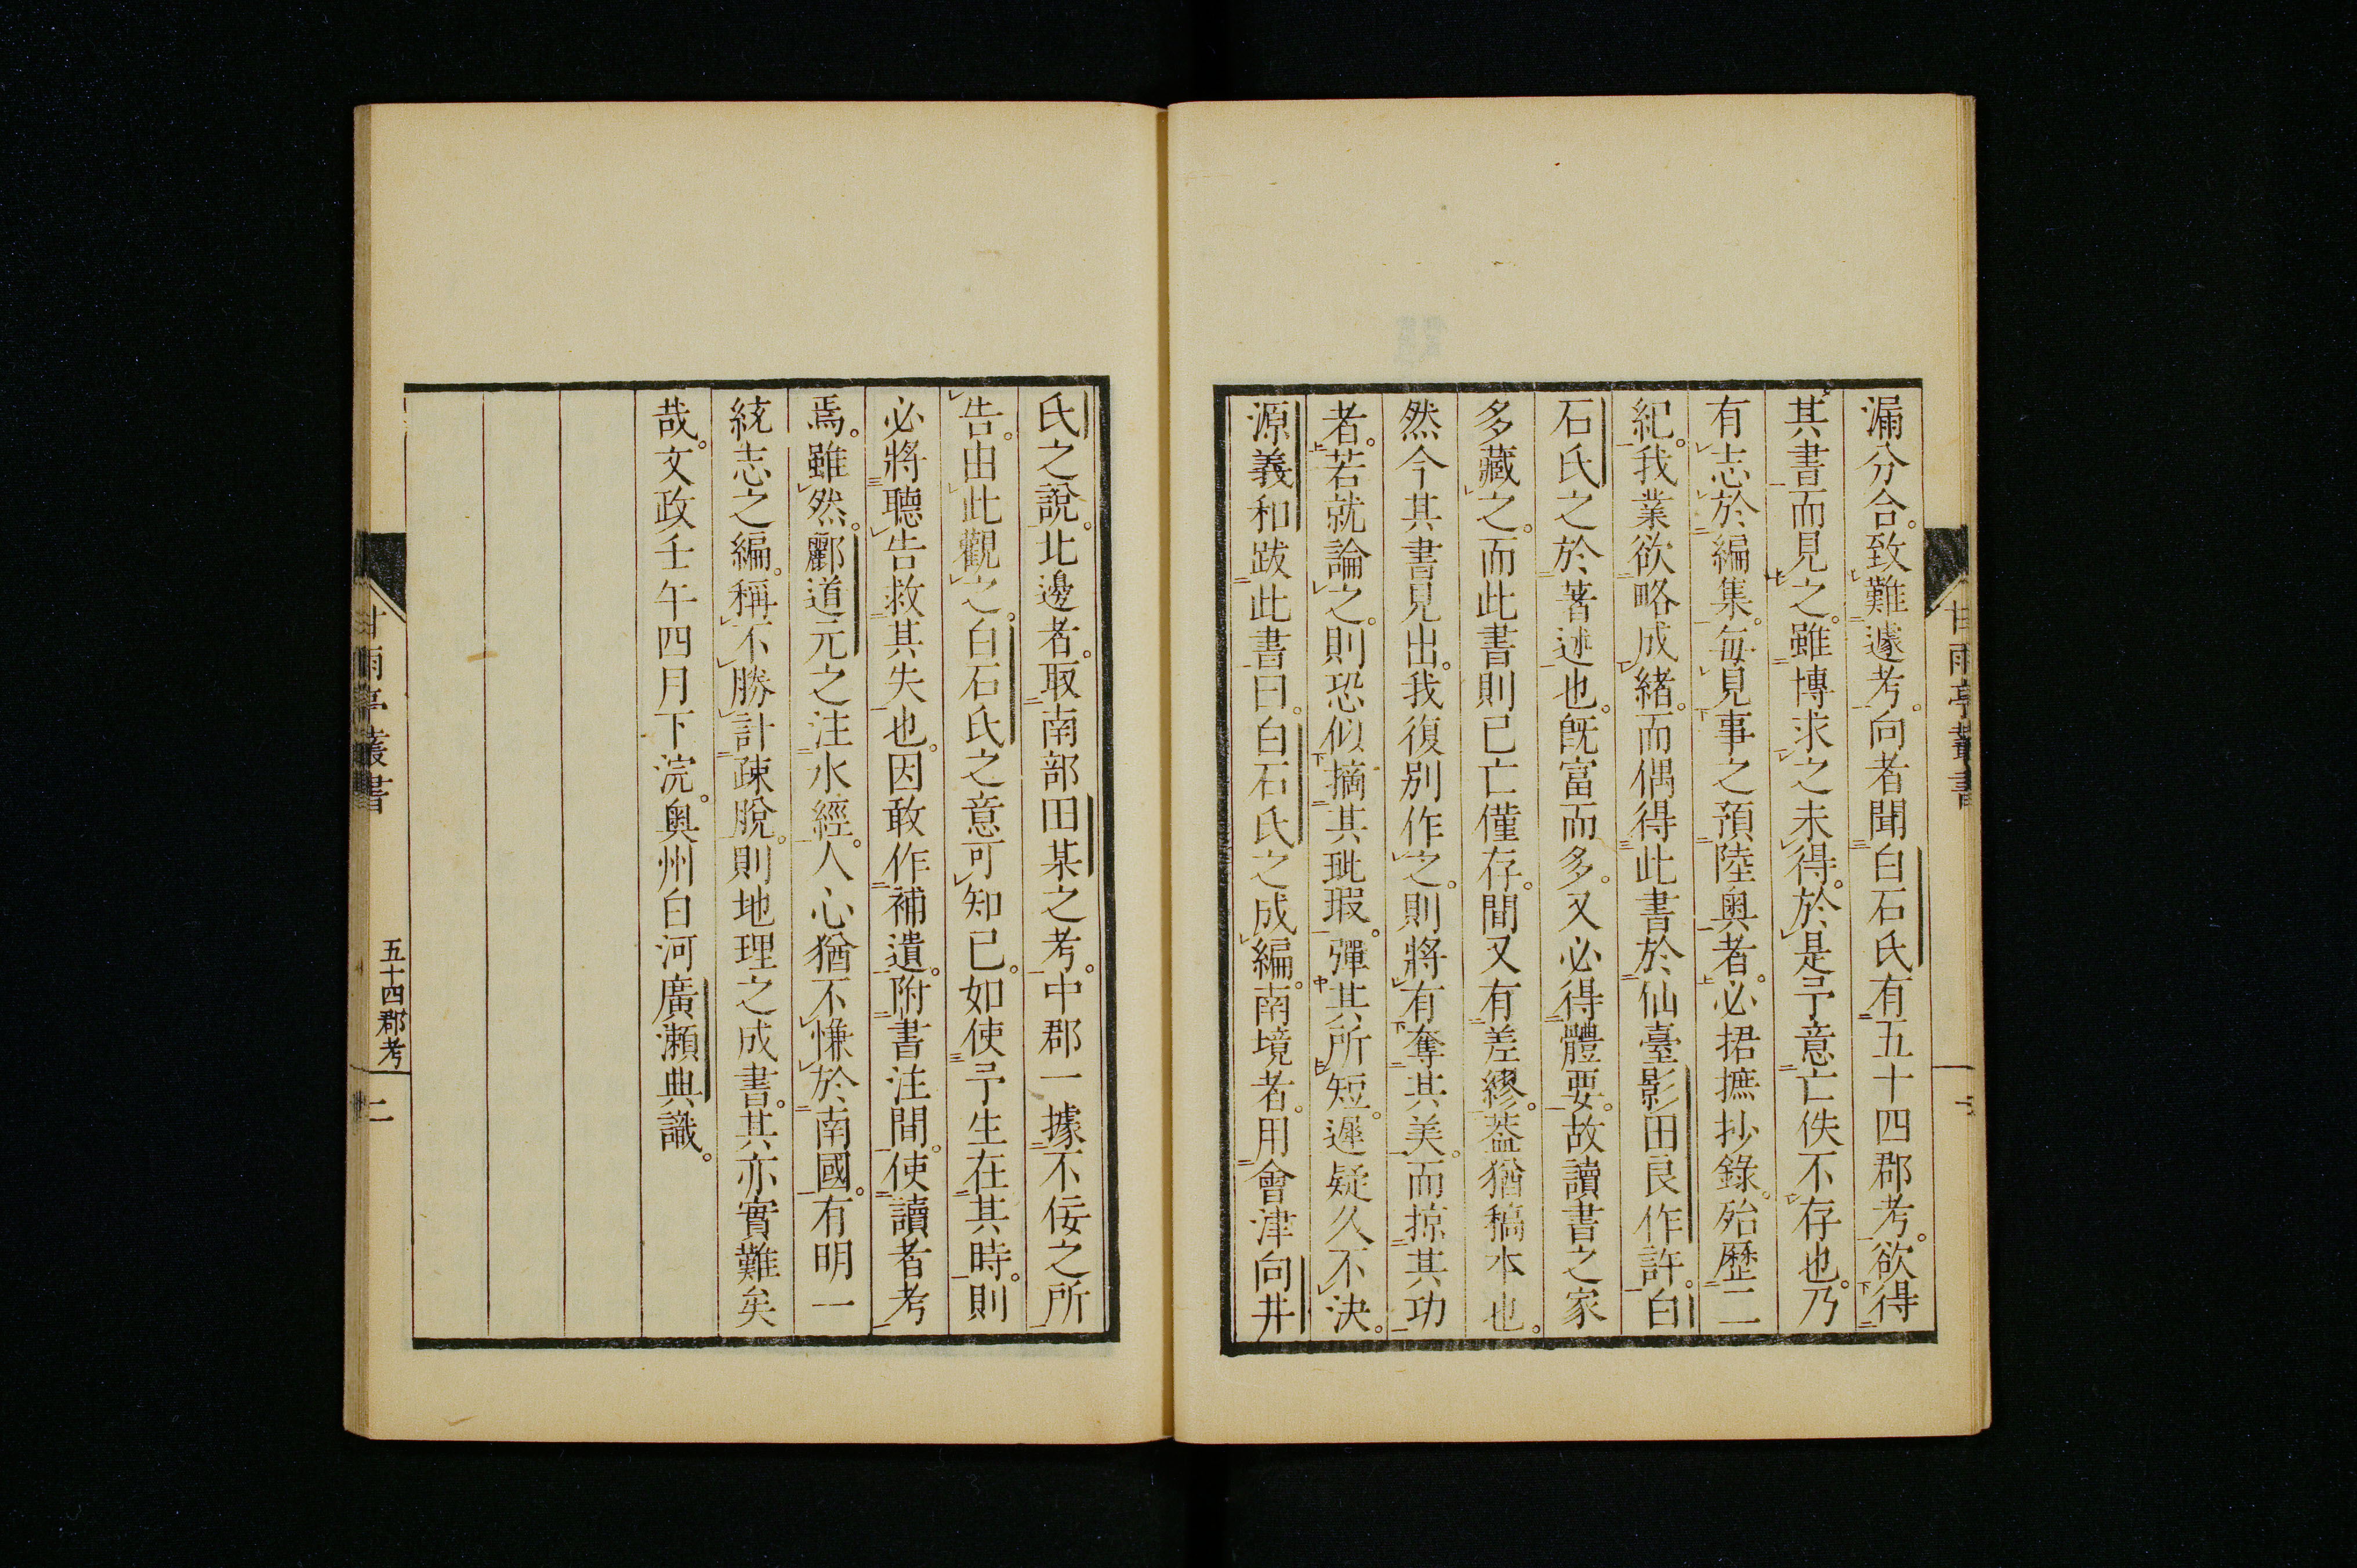 漏分合。致難遽考。向者聞白石氏有五十四郡考。欲得
其書而見之。雖博求之未得。於是予意亡佚不存也。乃
有志於編集。每見事之預陸奥者。必捃摭抄錄。殆歷二
紀。我業欲略成緒。而偶得此書於仙臺影田良作許。白
石氏之於著述也。既富而多。又必得體要。故讀書之家
多藏之。而此書則已亡僅存。間又有差繆。葢猶稿本也。
然今其書見出。我復別作之。則將有奪其美。而掠其功
者。若就論之。則恐似摘其玼瑕。彈其所短。遲疑久不決。
源義和跋此書曰。白石氏之成編。南境者。用會津向井
甘雨亭叢書
氏之說。北邊者。取南部田某之考。中郡一據不佞之所
告。由此觀之。白石氏之意可知已。如使予生在其時。則
必將聽告救其失也。因敢作補遺。附書注間。使讀者考
焉。雖然。酈道元之注水經。人心猶不慊於南國。有明一
統志之編。稱不勝計疎脫。則地理之成書。其亦實難矣
哉。文政壬午四月下浣。奥州白河廣瀬典識。
甘雨亭叢書
五十四郡考
二